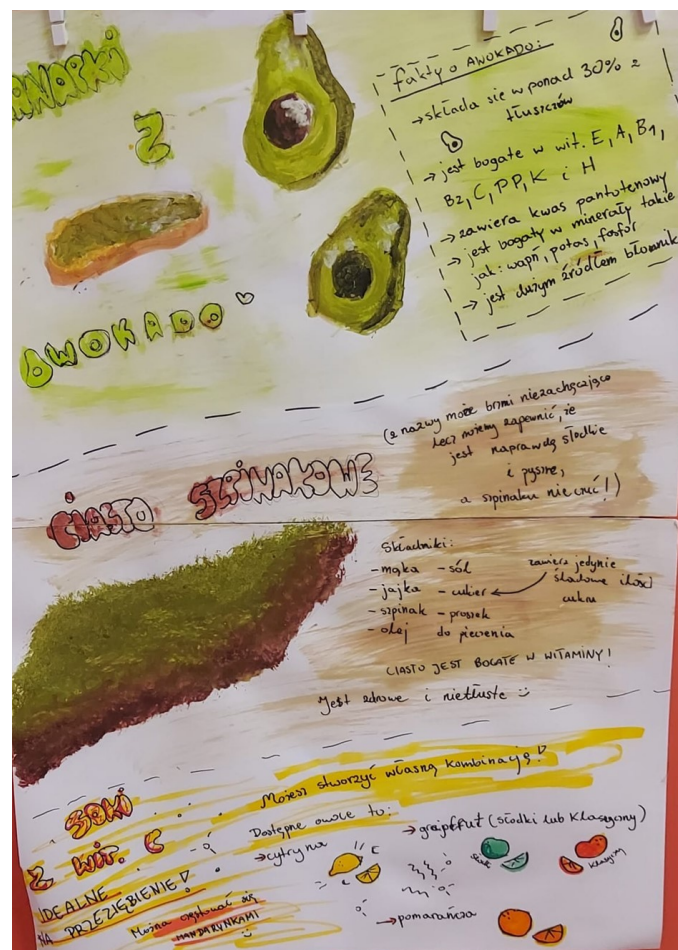 KANAPKI
Z
AWOKADO
fakty o AWOKADO:
→ składa się w ponad 30% z
tłuszczów
→ jest bogate w wit. E, A, B1,
B2, C, PP, K i H
→ zawiera kwas pantotenowy
→ jest bogaty w minerały takie
jak: wapń, potas, fosfor
→ jest dużym źródłem błonnik
CIASTO SZPINAKOWE
(z nazwy może brzmi niezachęcająco
lecz możemy zapewnić, że
jest naprawdę słodkie
i pyszne,
a szpinaku nie czuć!)
Składniki:
- mąka - sól
- jajka - cukier
- szpinak - proszek
- olej do pieczenia
zawiera jedynie
śladowe ilości
cukru
CIASTO JEST BOGATE W WITAMINY!
Jest zdrowe i nietłuste
SOKI
Z WIT. C
IDEALNE
NA PRZEZIĘBIENIE!
Można częstować się
MANDARYNKAMI
Możesz stworzyć własną kombinację!
Dostępne owoce to:
→ cytryna
→ grajpfrut (słodki lub klasyczny)
słodki
klasyczny
→ pomarańcza